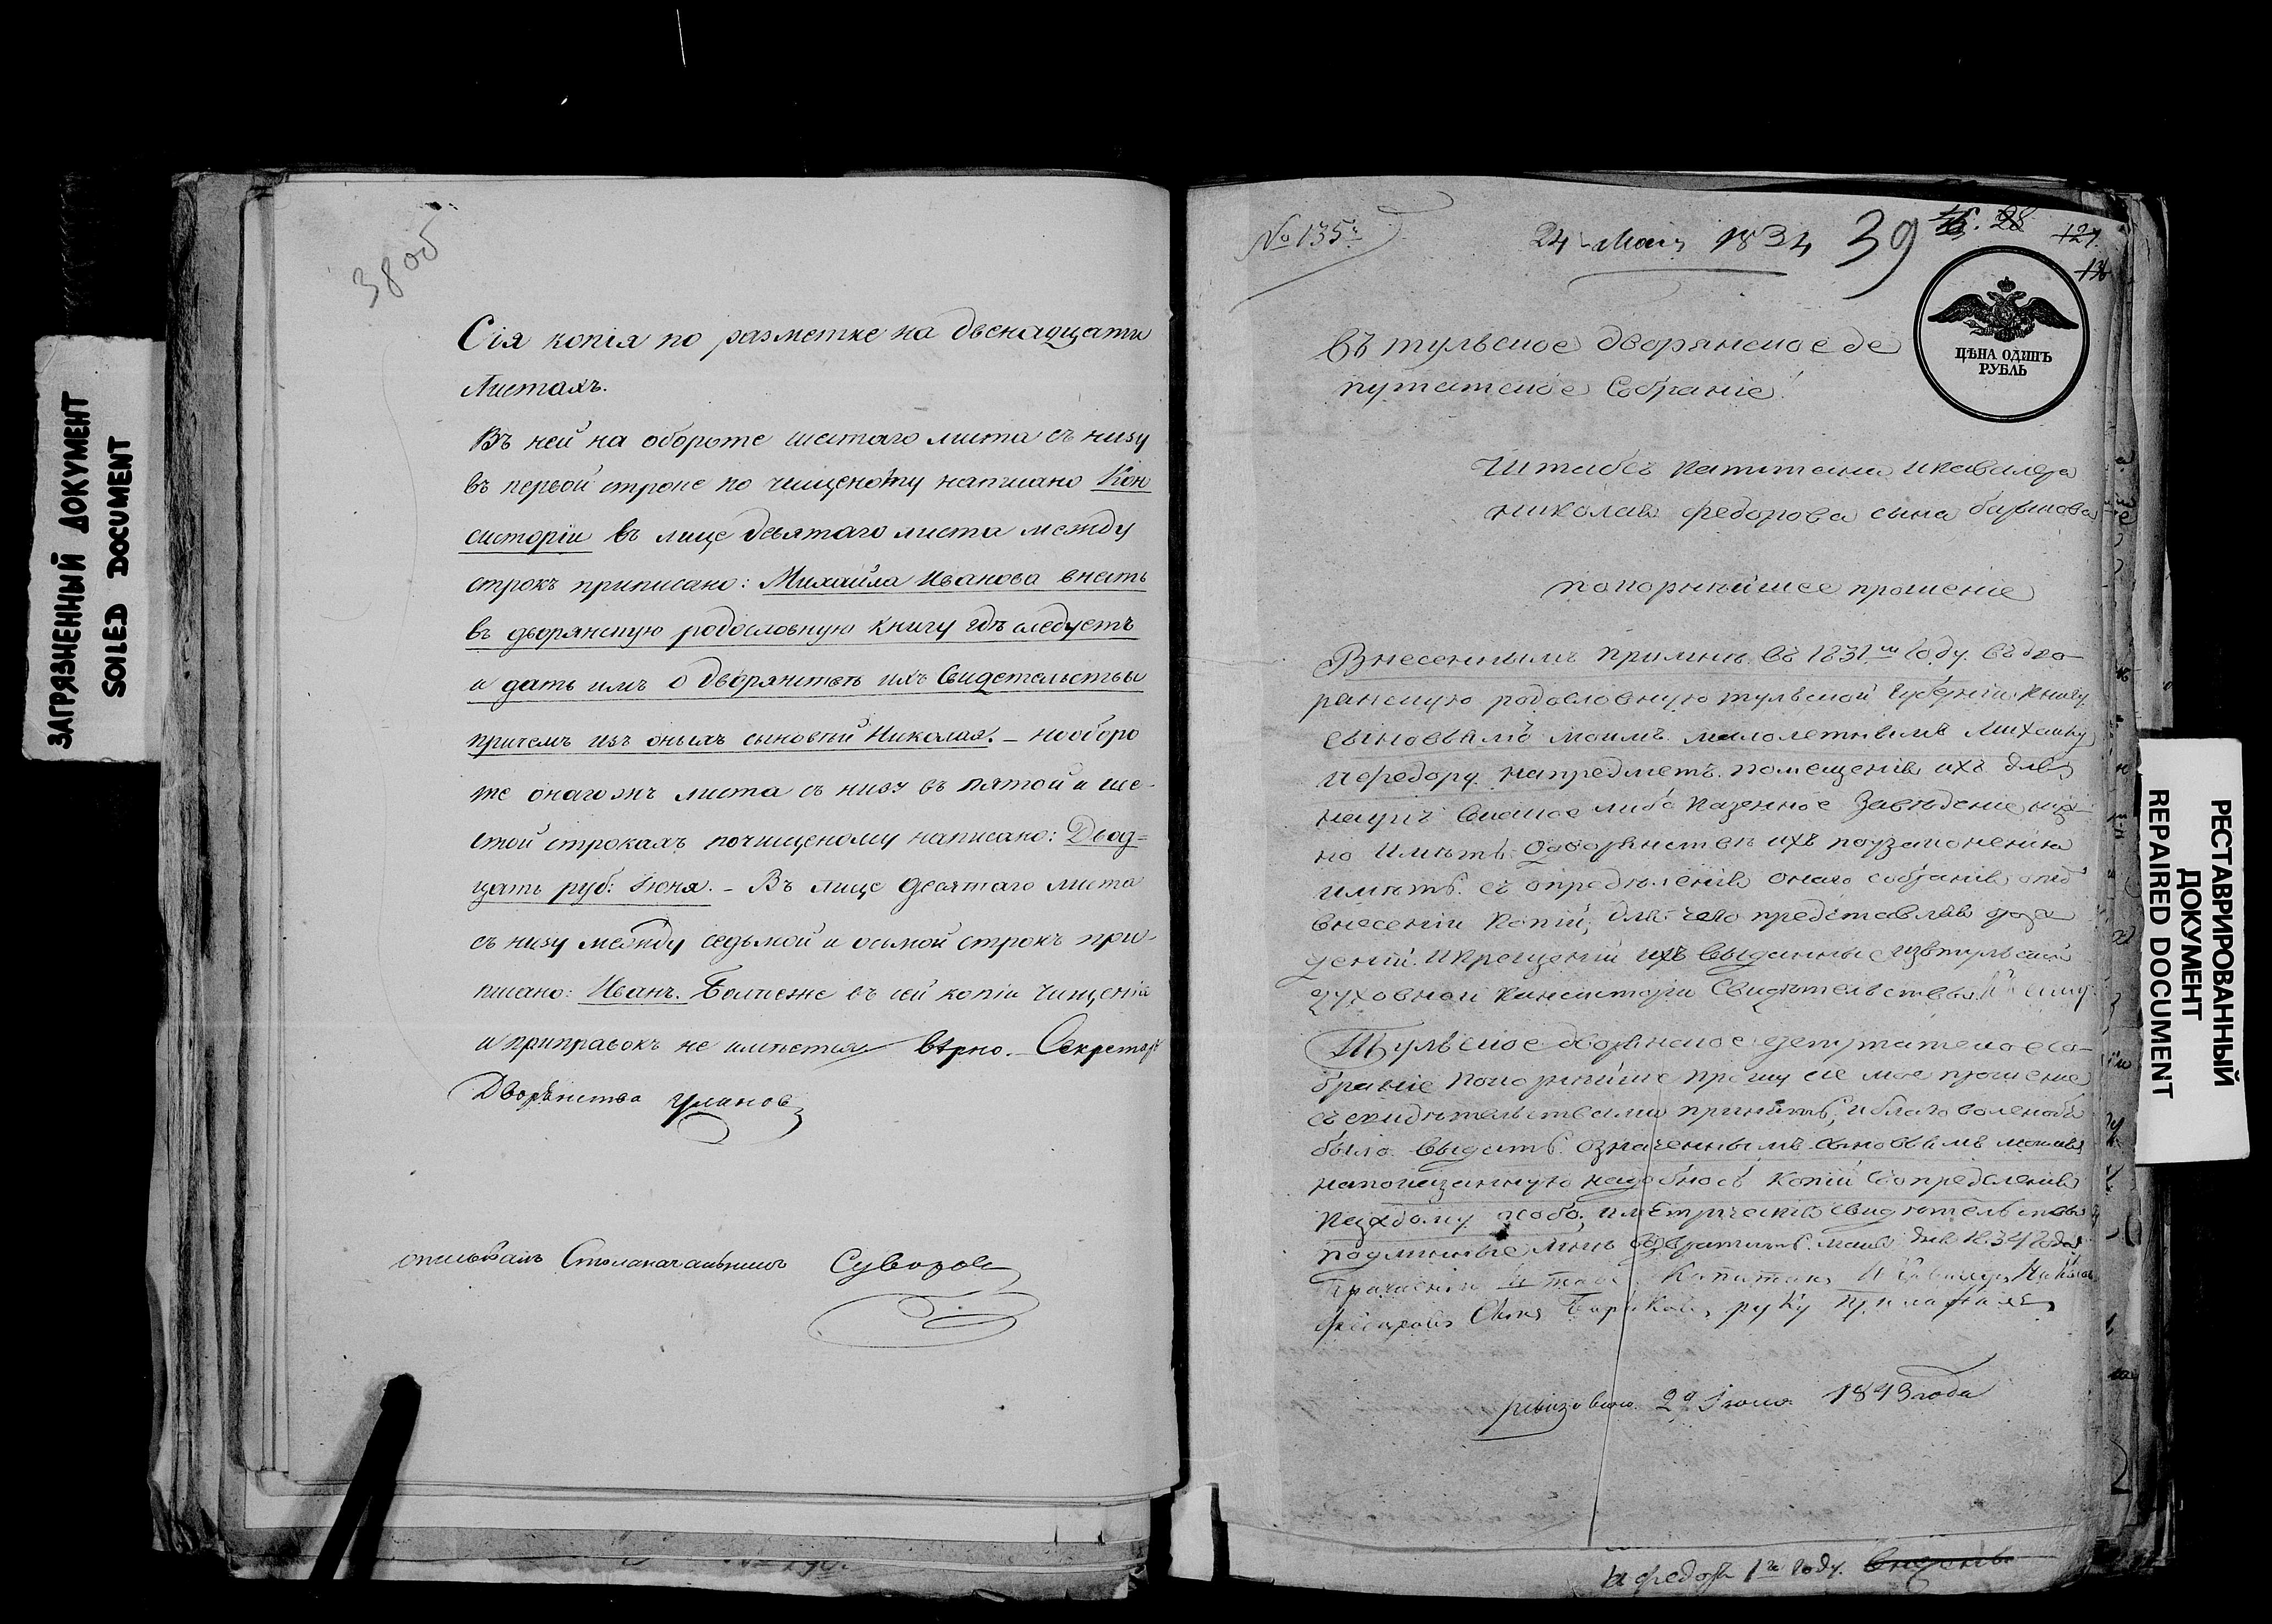 ЗАГРЯЗНЕННЫЙ ДОКУМЕНТ
SOILED DOCUMENT
38 об
Сія копія по разметке на двенадцати
Листахъ.
Въ ней на обороте шестаго листа съ низу
въ первой строке по чищеному написано Кон
систоріи въ лице девятаго листа между
строкъ приписано: Михайла Иванова внесть
въ дворянскую родословную книгу где следуетъ
и дать имъ о дворянстве ихъ Свидетельствы
причемъ изъ оныхъ сыновей Николая. – на оборо
те онагожъ листа съ низу въ пятой и ше-
стой строкахъ почищеному написано: Двад=
цать руб: Июня. – Въ лице десятаго листа
съ низу между седьмой и осьмой строкъ при-
писано: Иванъ. Болееже въ сей копіи чищеній
и приправокъ не имеется верно. Секретарь
Дворянства
Столоначальникъ Суворовъ
№ 135
24 Маія 1834 39 28
127
ЦѢНА ОДИНЪ
РУБЛЬ
Въ тульское дворянское де
путатское Собраніе
Штабсъ капитана и кавалера
николая федорова сына барыкова
покорнейшее прошеніе
Внесеннымъ при мне въ 1831м году въ дво-
рянскую родословную тульской губерніи книгу
сыновьямъ моимъ малолетнымъ михаилу
и федору на предметъ помещенія ихъ для
наукъ въ какое либо казенное заведение нуж-
но иметь о дворянстве ихъ по узаконенію
иметь съ определенія онаго собранія о
внесеніи копіи, для чего представляя о рож
деніи и крещеніи ихъ выданные изъ тульской
духовной консисторіи свидетельствы
Тульское дворянское депутатское со-
браніе покорнейше прошу сіе мое прошеніе
съ свидетельствами принять, и благоволенобъ
было выдать означеннымъ сыновьямъ моимъ
на показанную надобность копіи съ определенія
каждому особо, и метрическіе свидетельствы
подлинные мне возвратить. маія дня 1834 года
Къ прошенію Штабсъ Капитанъ и Кавалеръ Николай
федоровъ Сынъ Барыковъ руку приложилъ
29 Июня 1843 года
и федоръ 1го году.
РЕСТАВРИРОВАННЫЙ
ДОКУМЕНТ
REPAIRED DOCUMENT